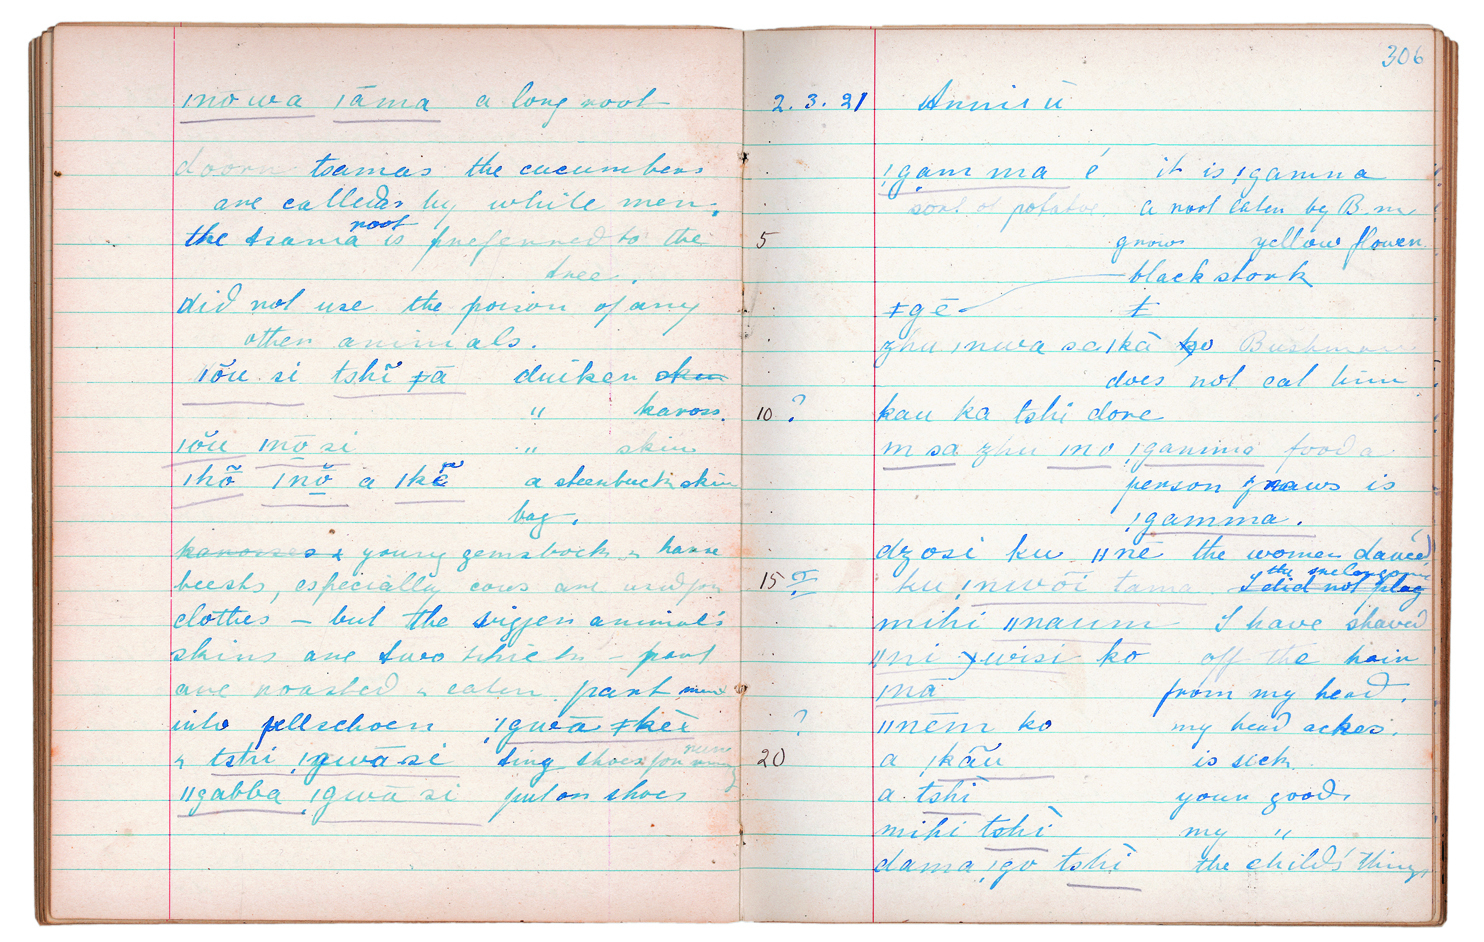 ıno wa ıāma a long root
doorn tsamas the cucumbers
are called by white men;
root
the tsama is preferred to the
tree.
did not use the poison of any
other animals.
ıŏu si tshĭ ǂā duiker skin
" kaross.
ıŏu ınō si " skin
ıhõ ınŏ a ıkẽ a steenbuck skin
bag.
karosses & young gemsbock & harte
beests, especially cows are used for
clothes – but the bigger animals
skins are two thick – part
are roasted & eaten part
into vellschoen ¦gwā ǂkēi
& tshi ¦gwā si ting shoes for
ǁgabba ¦gwā si put on shoes
306
2. 3. 21 Annis ú
¦gam ma é it is ¦gamma
sort of potatoe a root eaten by B. m
5 grows yellow flower
black stork
ǂgē ǂ
zhu ınwa sa ıkā ko Bushman
does not eat him
10 ? kau ka tshi dore
m sa zhu ıno ¦gamma food a
person gnaws is
¦gamma.
dzosi ku ǁnē the women dance
the melongame
15 I ku ¦nwōi tama I did not play
mihi ǁnaum I have shaved
ǁni wisi ko off the hair
ınā from my head.
? ǁnēm ko my head aches.
20 a ¦kāũ is sick
a tshi your goods
mihi tshi my "
dama ¦go tshi the child's things